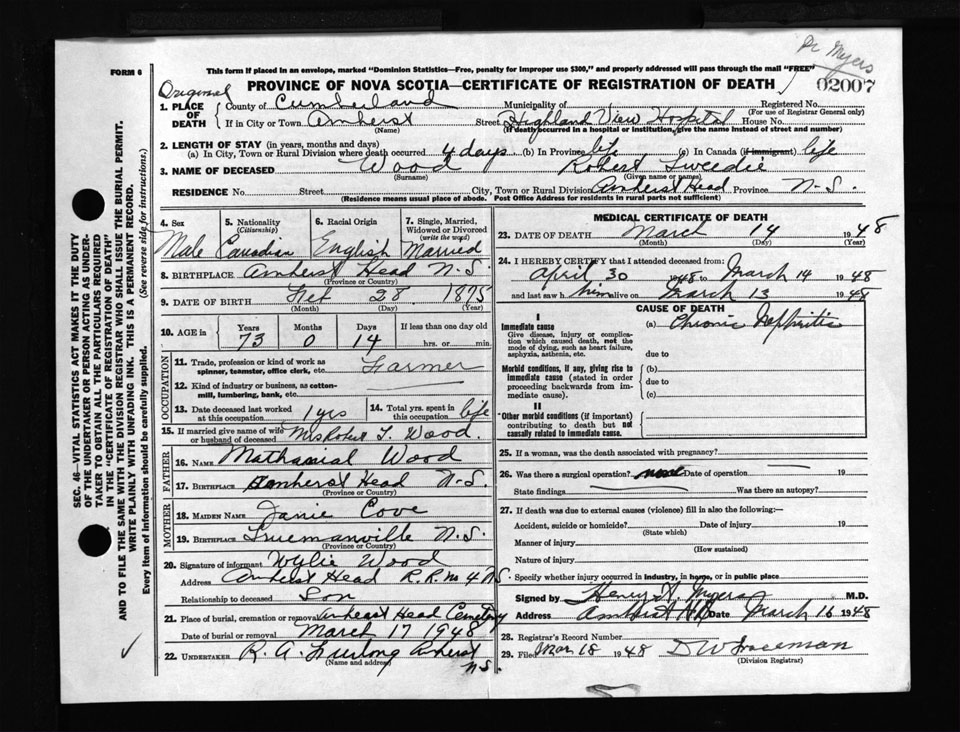 Dr Myers
This form if placed in an envelope, marked "Dominion Statistics—Free, penalty for improper use $300," and properly addressed will pass through the mail "FREE"
FORM 6
PROVINCE OF NOVA SCOTIA—CERTIFICATE OF REGISTRATION OF DEATH
02007
Original
1. PLACE OF DEATH
County of Cumberland Municipality of Registered No.
(For use of Registrar General only)
If in City or Town Amherst Street Highland View Hospital House No.
(Name) (If death occurred in a hospital or institution, give the name instead of street and number)
2. LENGTH OF STAY (in years, months and days)
(a) In City, Town or Rural Division where death occurred 4 days (b) In Province life (c) In Canada (if immigrant) life
3. NAME OF DECEASED Wood Robert Tweedie
(Surname) (Given name or names)
RESIDENCE No. Street City, Town or Rural Division Amherst Head Province N-S.
(Residence means usual place of abode. Post Office Address for residents in rural parts not sufficient)
4. Sex Male
5. Nationality (Citizenship) Canadian
6. Racial Origin English
7. Single, Married, Widowed or Divorced (write the word) Married
8. BIRTHPLACE Amherst Head N-S.
(Province or County)
9. DATE OF BIRTH Feb 28 1875
(Month) (Day) (Year)
10. AGE in Years Months Days If less than one day old
73 0 14 hrs. or min.
OCCUPATION
11. Trade, profession or kind of work as spinner, teamster, office clerk, etc. Farmer
12. Kind of industry or business, as cotton-mill, lumbering, bank, etc.
13. Date deceased last worked at this occupation 1 yrs
14. Total yrs. spent in this occupation life
15. If married give name of wife or husband of deceased Mrs Robert T. Wood.
FATHER
16. NAME Nathanial Wood
17. BIRTHPLACE Amherst Head N-S.
(Province or County)
MOTHER
18. MAIDEN NAME Janie Cove
19. BIRTHPLACE Truemanville N.S.
(Province or County)
20. Signature of informant Wylie Wood
Address Amherst Head R.R. No 4 N.S.
Relationship to deceased Son
21. Place of burial, cremation or removal Amherst Head Cemetery
Date of burial or removal March 17 1948
22. UNDERTAKER R. A. Furlong Amherst N.S.
(Name and address)
MEDICAL CERTIFICATE OF DEATH
23. DATE OF DEATH March 14 1948
(Month) (Day) (Year)
24. I HEREBY CERTIFY that I attended deceased from:
April 30 1948 to March 14 1948
and last saw him alive on March 13 1948
CAUSE OF DEATH
I
Immediate cause (a) Chronic Nephritis
Give disease, injury or complication which caused death, not the mode of dying, such as heart failure, asphyxia, asthenia, etc.
due to
Morbid conditions, if any, giving rise to immediate cause (stated in order proceeding backwards from immediate cause).
(b)
due to
(c)
II
Other morbid conditions (if important) contributing to death but not causally related to immediate cause.
25. If a woman, was the death associated with pregnancy?
26. Was there a surgical operation? Date of operation 19
State findings Was there an autopsy?
27. If death was due to external causes (violence) fill in also the following:—
Accident, suicide or homicide? Date of injury 19
(State which)
Manner of injury
(How sustained)
Nature of injury
Specify whether injury occurred in industry, in home, or in public place
Signed by Henry A. Myers M.D.
Address Amherst N.S. Date March 16 1948
28. Registrar's Record Number
29. Filed Mar 18 1948
(Division Registrar)
SEC. 46—VITAL STATISTICS ACT MAKES IT THE DUTY
OF THE UNDERTAKER OR PERSON ACTING AS UNDER-
TAKER TO OBTAIN ALL THE PARTICULARS REQUIRED
IN THE "CERTIFICATE OF REGISTRATION OF DEATH"
AND TO FILE THE SAME WITH THE DIVISION REGISTRAR WHO SHALL ISSUE THE BURIAL PERMIT.
WRITE PLAINLY WITH UNFADING INK. THIS IS A PERMANENT RECORD.
Every item of information should be carefully supplied. (See reverse side for instructions.)